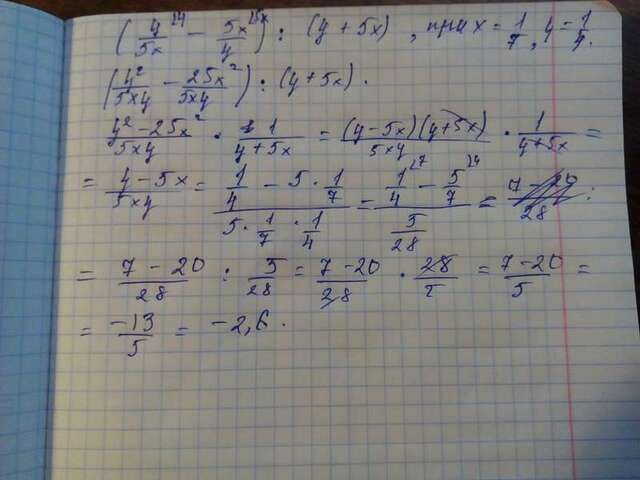 (y/5x - 5x/y) : (y + 5x), при x = 1/7, y = 1/4.
(y²/5xy - 25x²/5xy) : (y + 5x).
y² - 25x²/5xy · 1/y + 5x = (y - 5x)(y + 5x)/5xy · 1/y + 5x =
= y - 5x/5xy = (1/4 - 5 · 1/7)/(5 · 1/7 · 1/4) = (1/4 - 5/7)/(5/28) =
= 7 - 20/28 : 5/28 = 7 - 20/28 · 28/5 = 7 - 20/5 =
= -13/5 = -2,6.